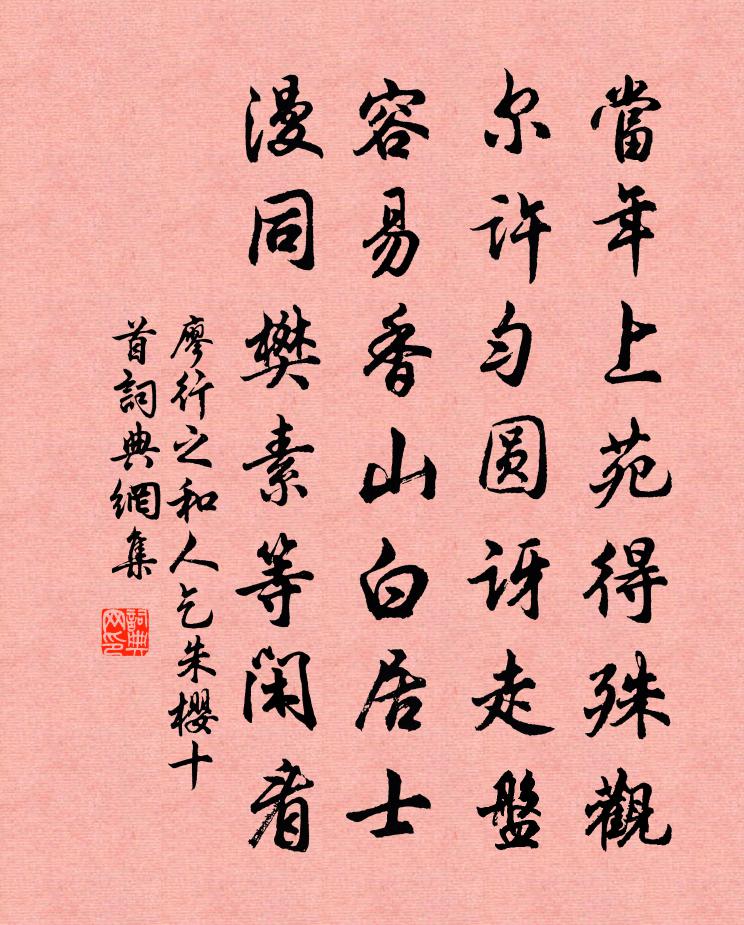 當年上苑得殊觀
尔許匀圆訝走盤
容易香山白居士
漫同樊素等闲看
廖行之和人乞朱櫻十
首詞典網集
詞典
网印